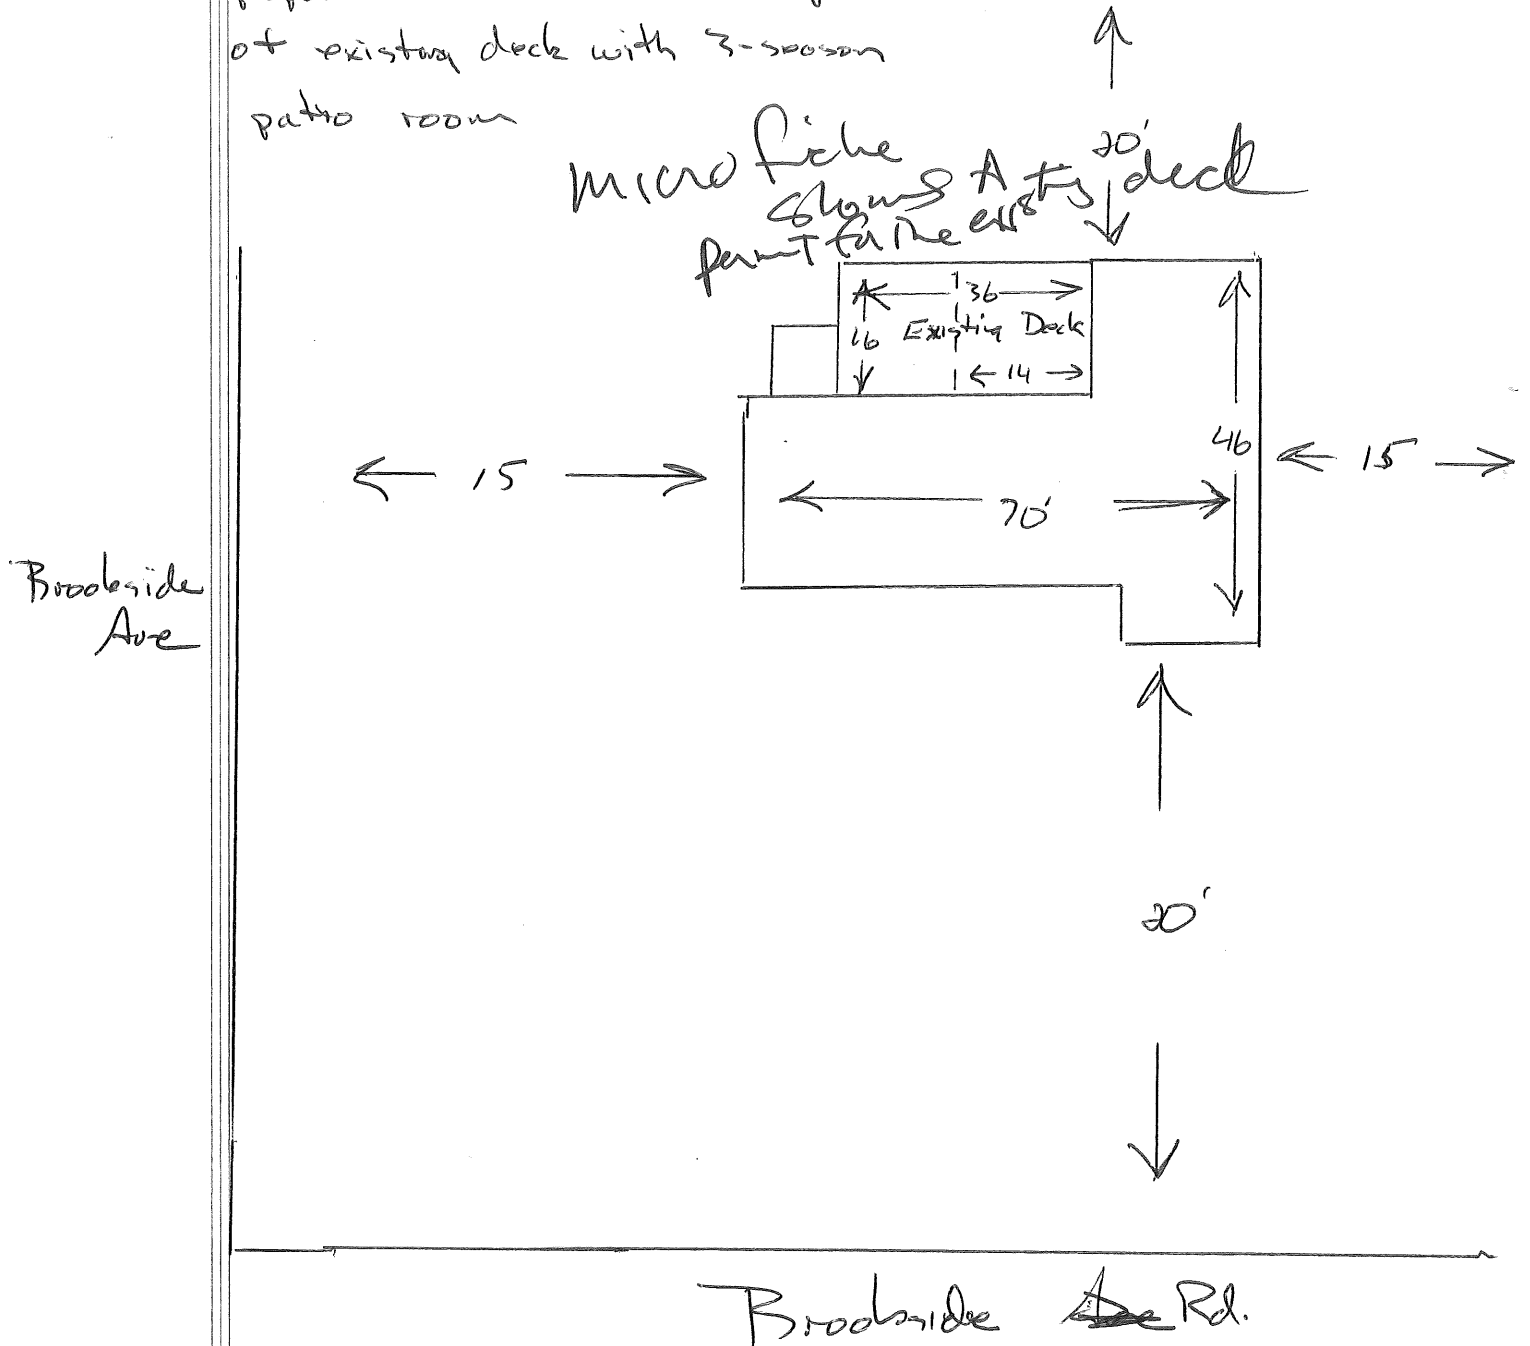 of existing deck with 3-season
patio room
20'
microfiche
shows A
permit for the existing deck
36
16 Existing Deck
14
46
15
15
70'
Brookside
Ave
20'
Brookside Rd.